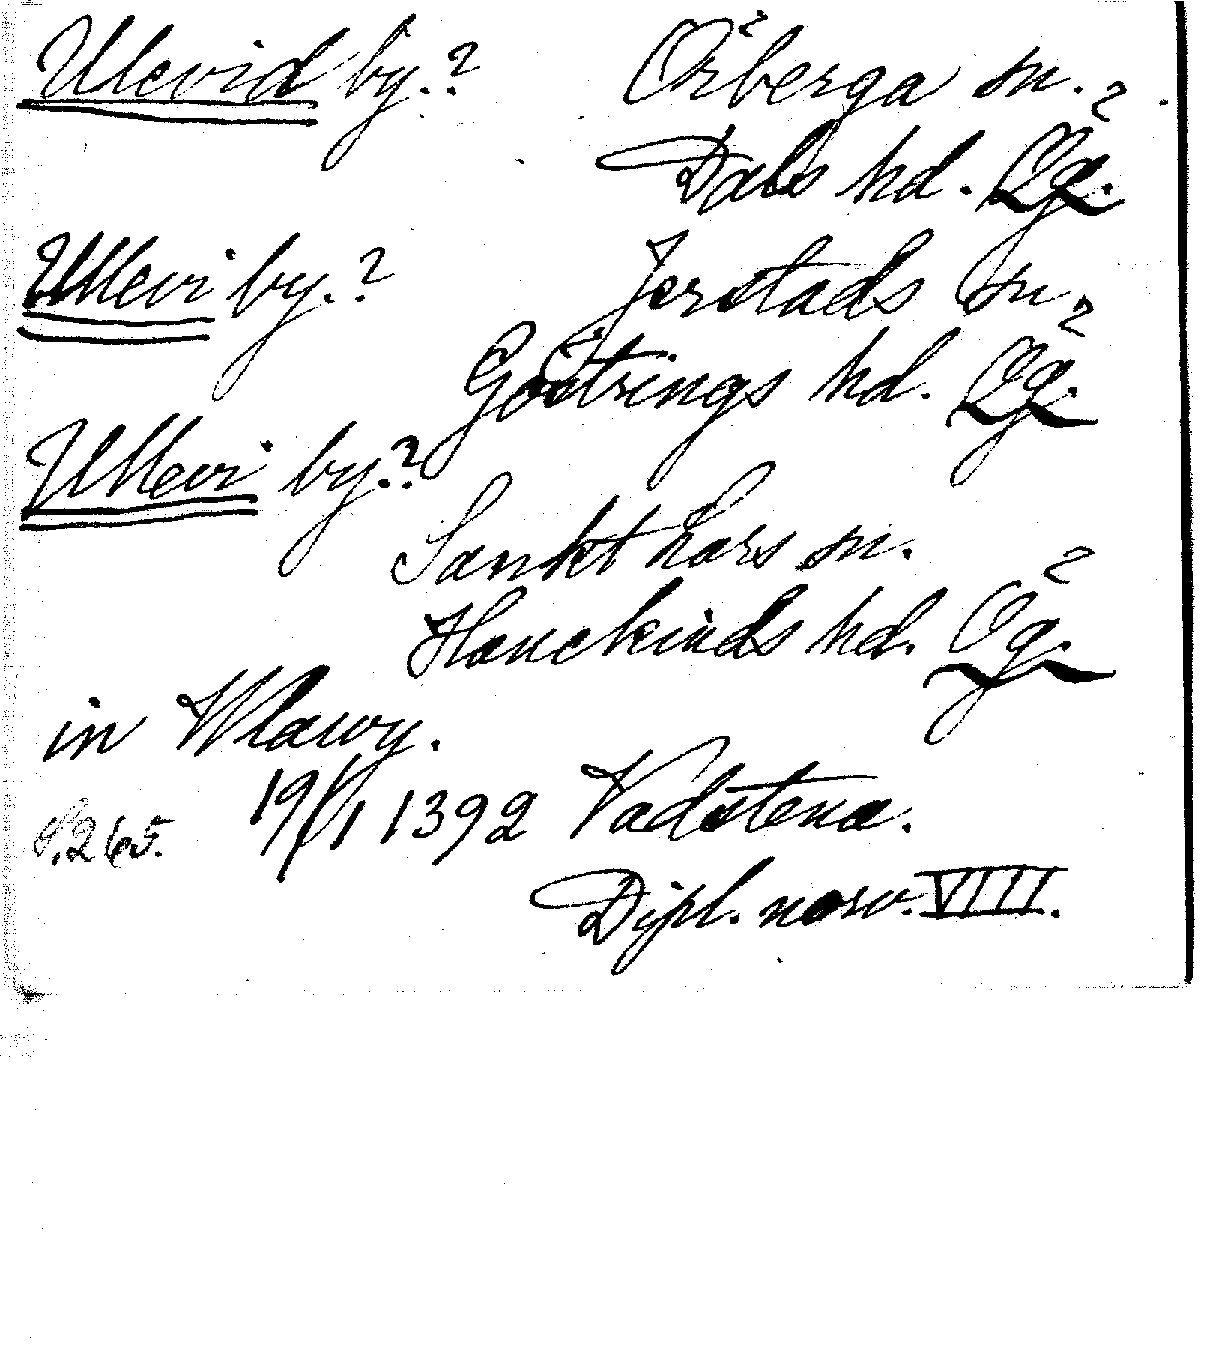 Ulevid by.? Örberga sn.
Dals hd. Ög.
Ullevi by.? Jerstads sn
Göstrings hd. Ög.
Ullevi by.?
Sankt Lars sn.
Hanekinds hd. Ög.
in Wlawy.
19/1 1392 Vadstena.
S. 265.
Dipl. norv. VIII.